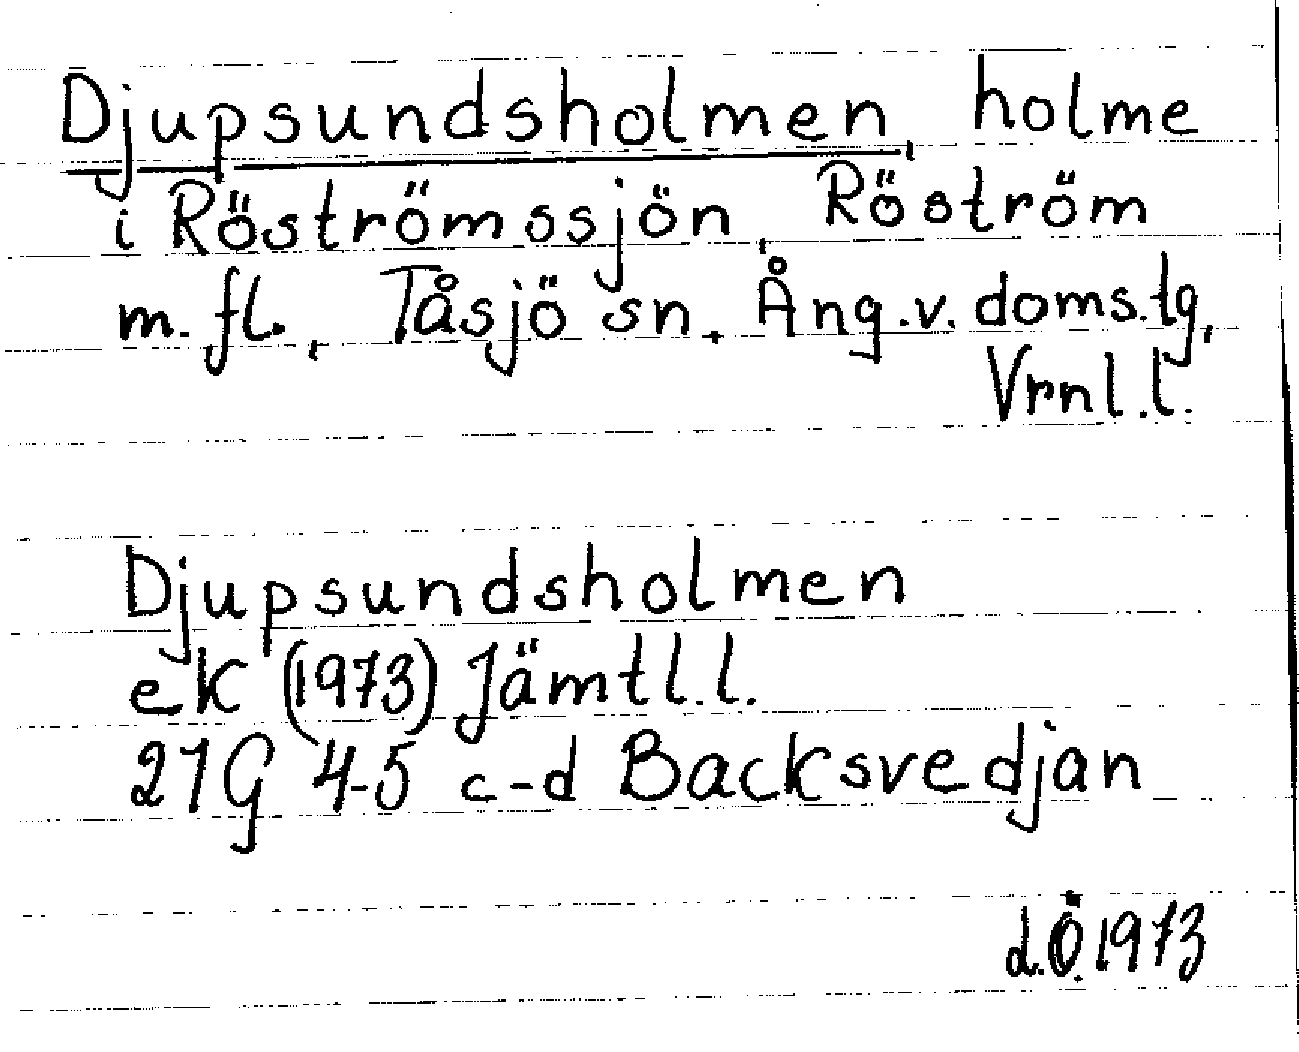 Djupsundsholmen, holme
i Röströmssjön, Röström
m. fl., Tåsjö sn, Ång.v. doms.tg,
Vrnl.l.
Djupsundsholmen
ek (1973) Jämtl.l.
21G 4-5 c-d Backsvedjan
L.Ö. 1973